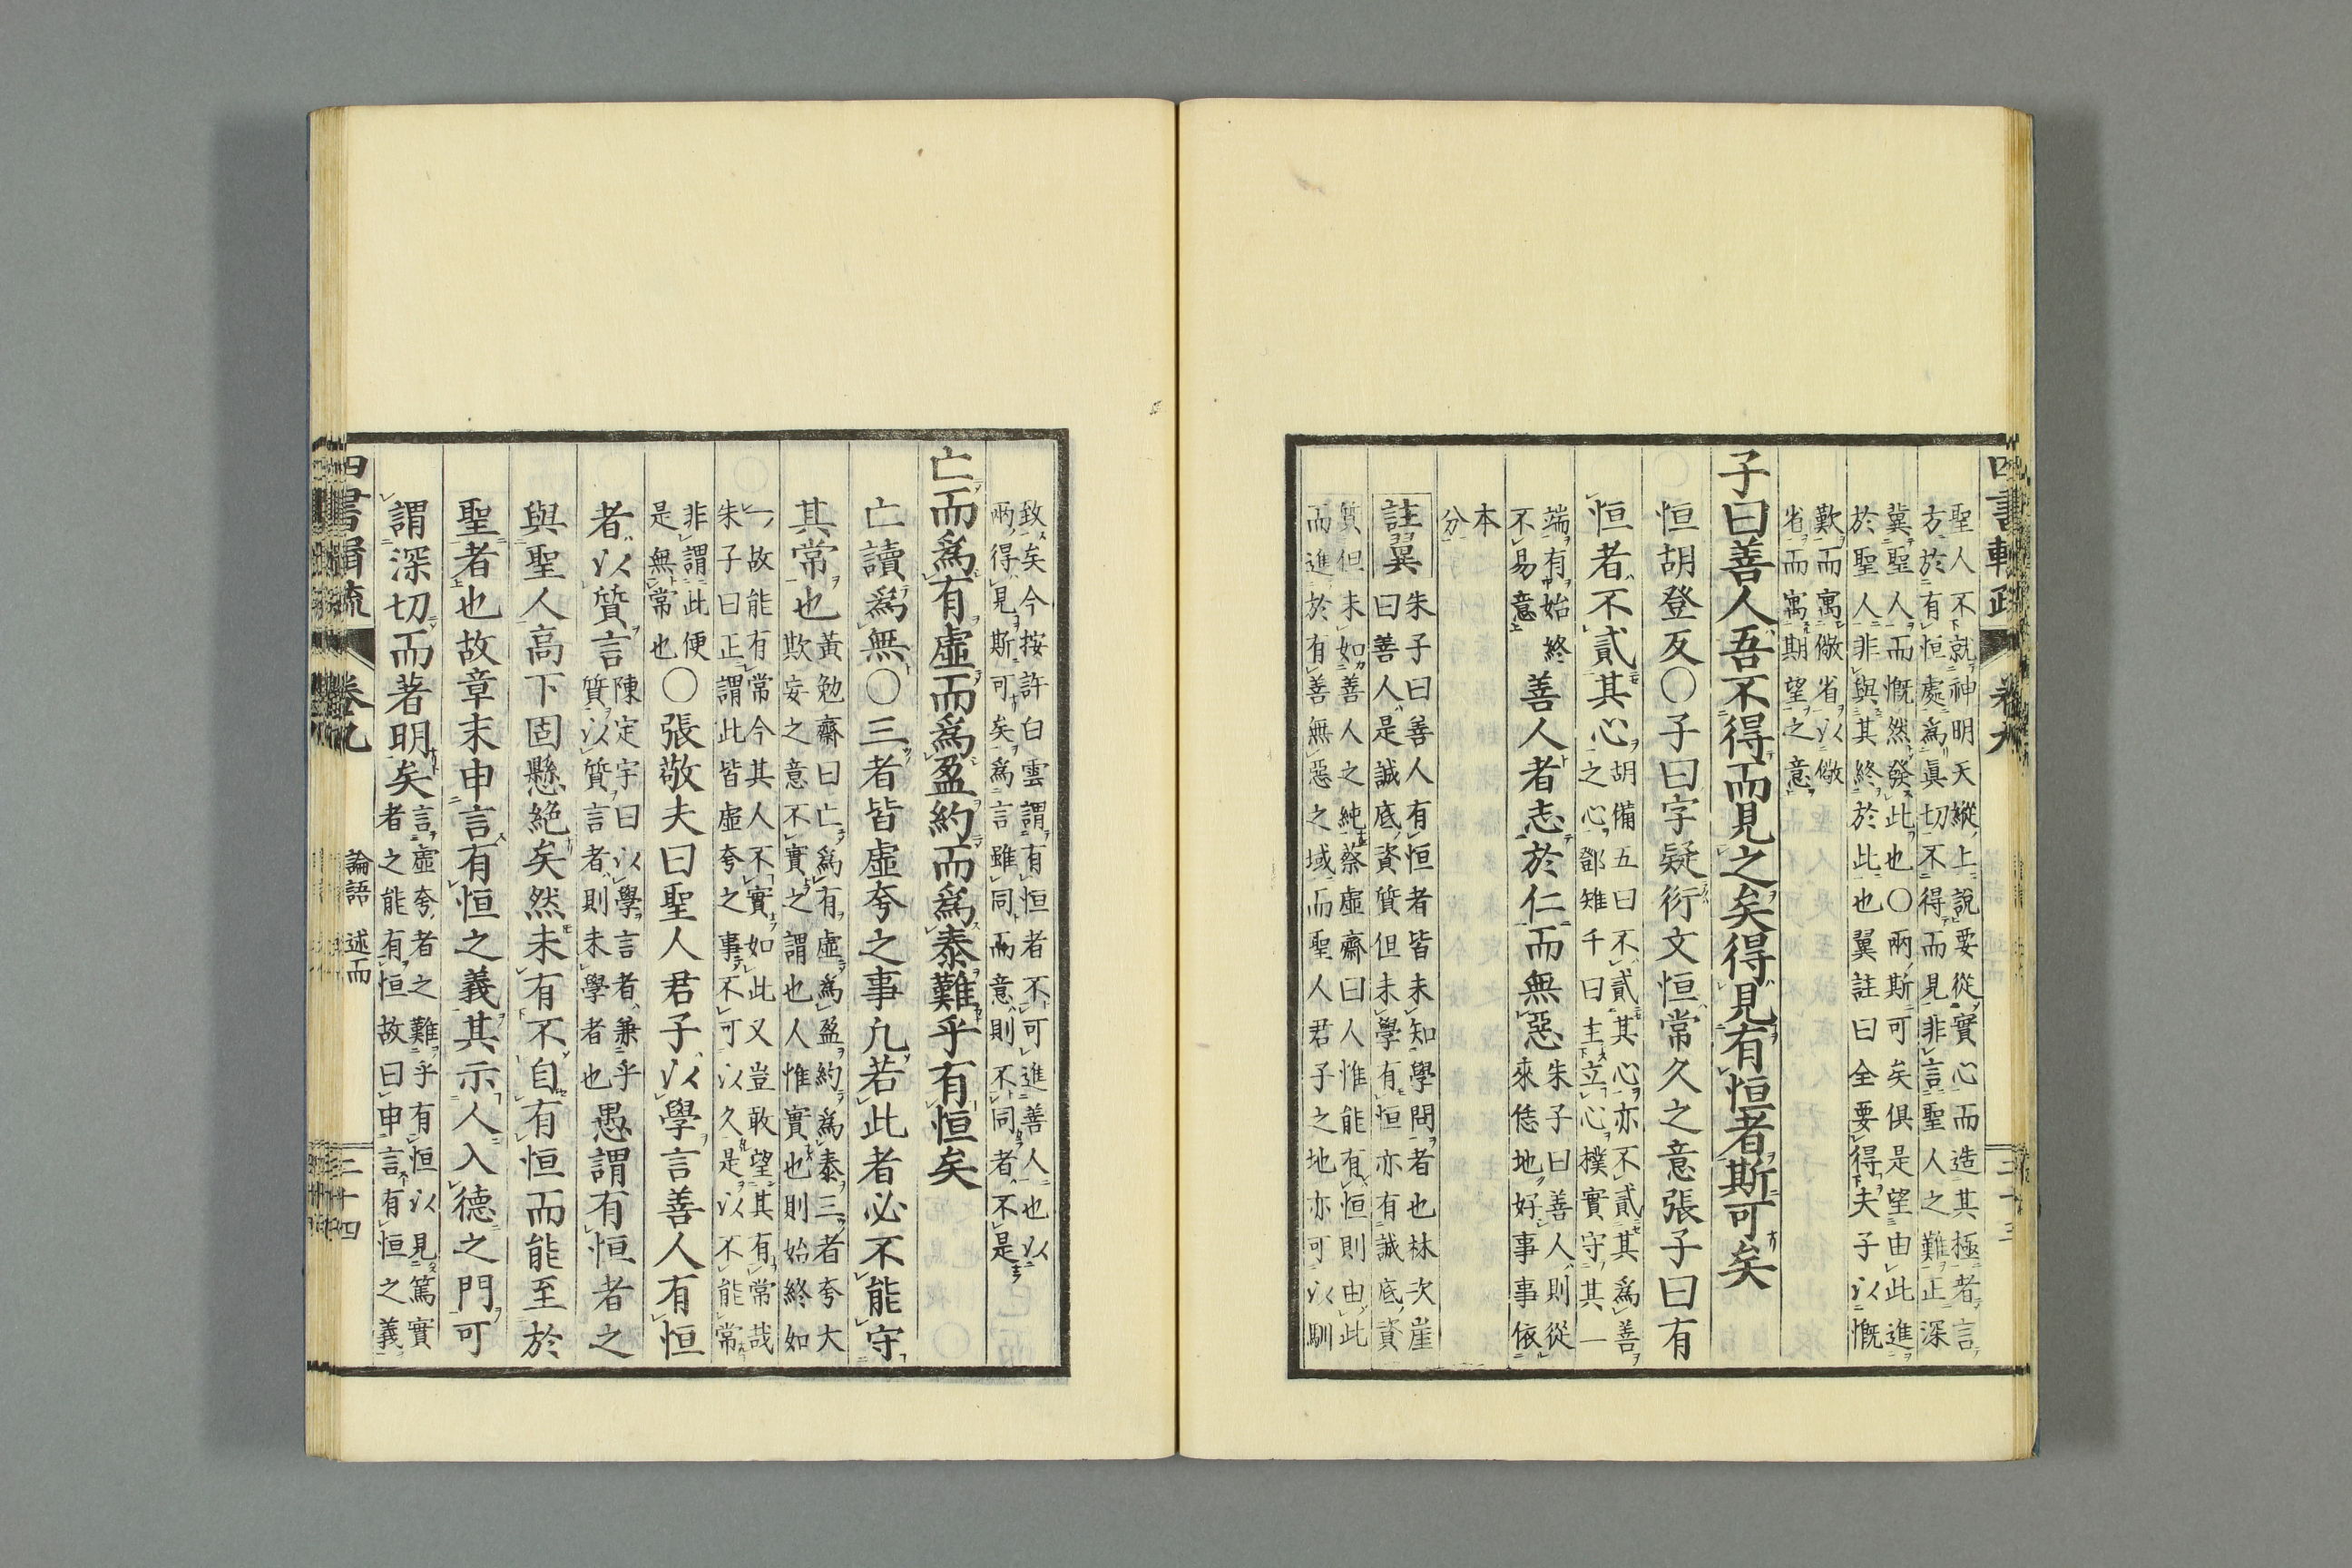 聖人不就神明天縱上說要從實心而造其極者言
方於有恒處爲眞切不得而見非言聖人之難正深
冀聖人而慨然發此也〇兩斯可矣俱是望由此進
於聖人非與其終於此也翼註曰全要得夫子以慨
歎而寓儆省以儆
省而寓期望之意
子曰善人吾不得而見之矣得見有恒者斯可矣
恒胡登反〇子曰字疑衍文恒常久之意張子曰有
恒者不貳其心
之心鄧雉千曰主立心樸實守其一
胡備五曰不貳其心亦不貳其爲善
端有始終
不易意
善人者志於仁而無惡
朱子曰善人則從
來恁地好事事依
本
分
註翼
朱子曰善人有恒者皆未知學問者也林次崖
曰善人是誠底資質但未學有恒亦有誠底資
質但未如善人之純蔡虛齋曰人惟能有恒則由此
而進於有善無惡之域而聖人君子之地亦可以馴
致矣今按許白雲謂有恒者不可進善人也以
兩得見斯可矣爲言雖同而意則不同者不是
亡而爲有虛而爲盈約而爲泰難乎有恒矣
亡讀爲無〇三者皆虛夸之事凡若此者必不能守
其常也
黃勉齋曰亡爲有虛爲盈約爲泰三者夸大
欺妄之意不實之謂也人惟實也則始終如
一故能有常今其人不實如此又豈敢望其有常哉
朱子曰正謂此皆虛夸之事不可以久是以不能常
非謂此便
是無常也
〇張敬夫曰聖人君子以學言善人有恒
者以質言
陳定宇曰以學言者兼乎
質以質言者則未學者也
愚謂有恒者之
與聖人高下固懸絶矣然未有不自有恒而能至於
聖者也故章末申言有恒之義其示人入德之門可
謂深切而著明矣
言虛夸者之難乎有恒以見篤實
者之能有恒故曰申言有恒之義
四書輯疏 卷九 論語 述而 二十四